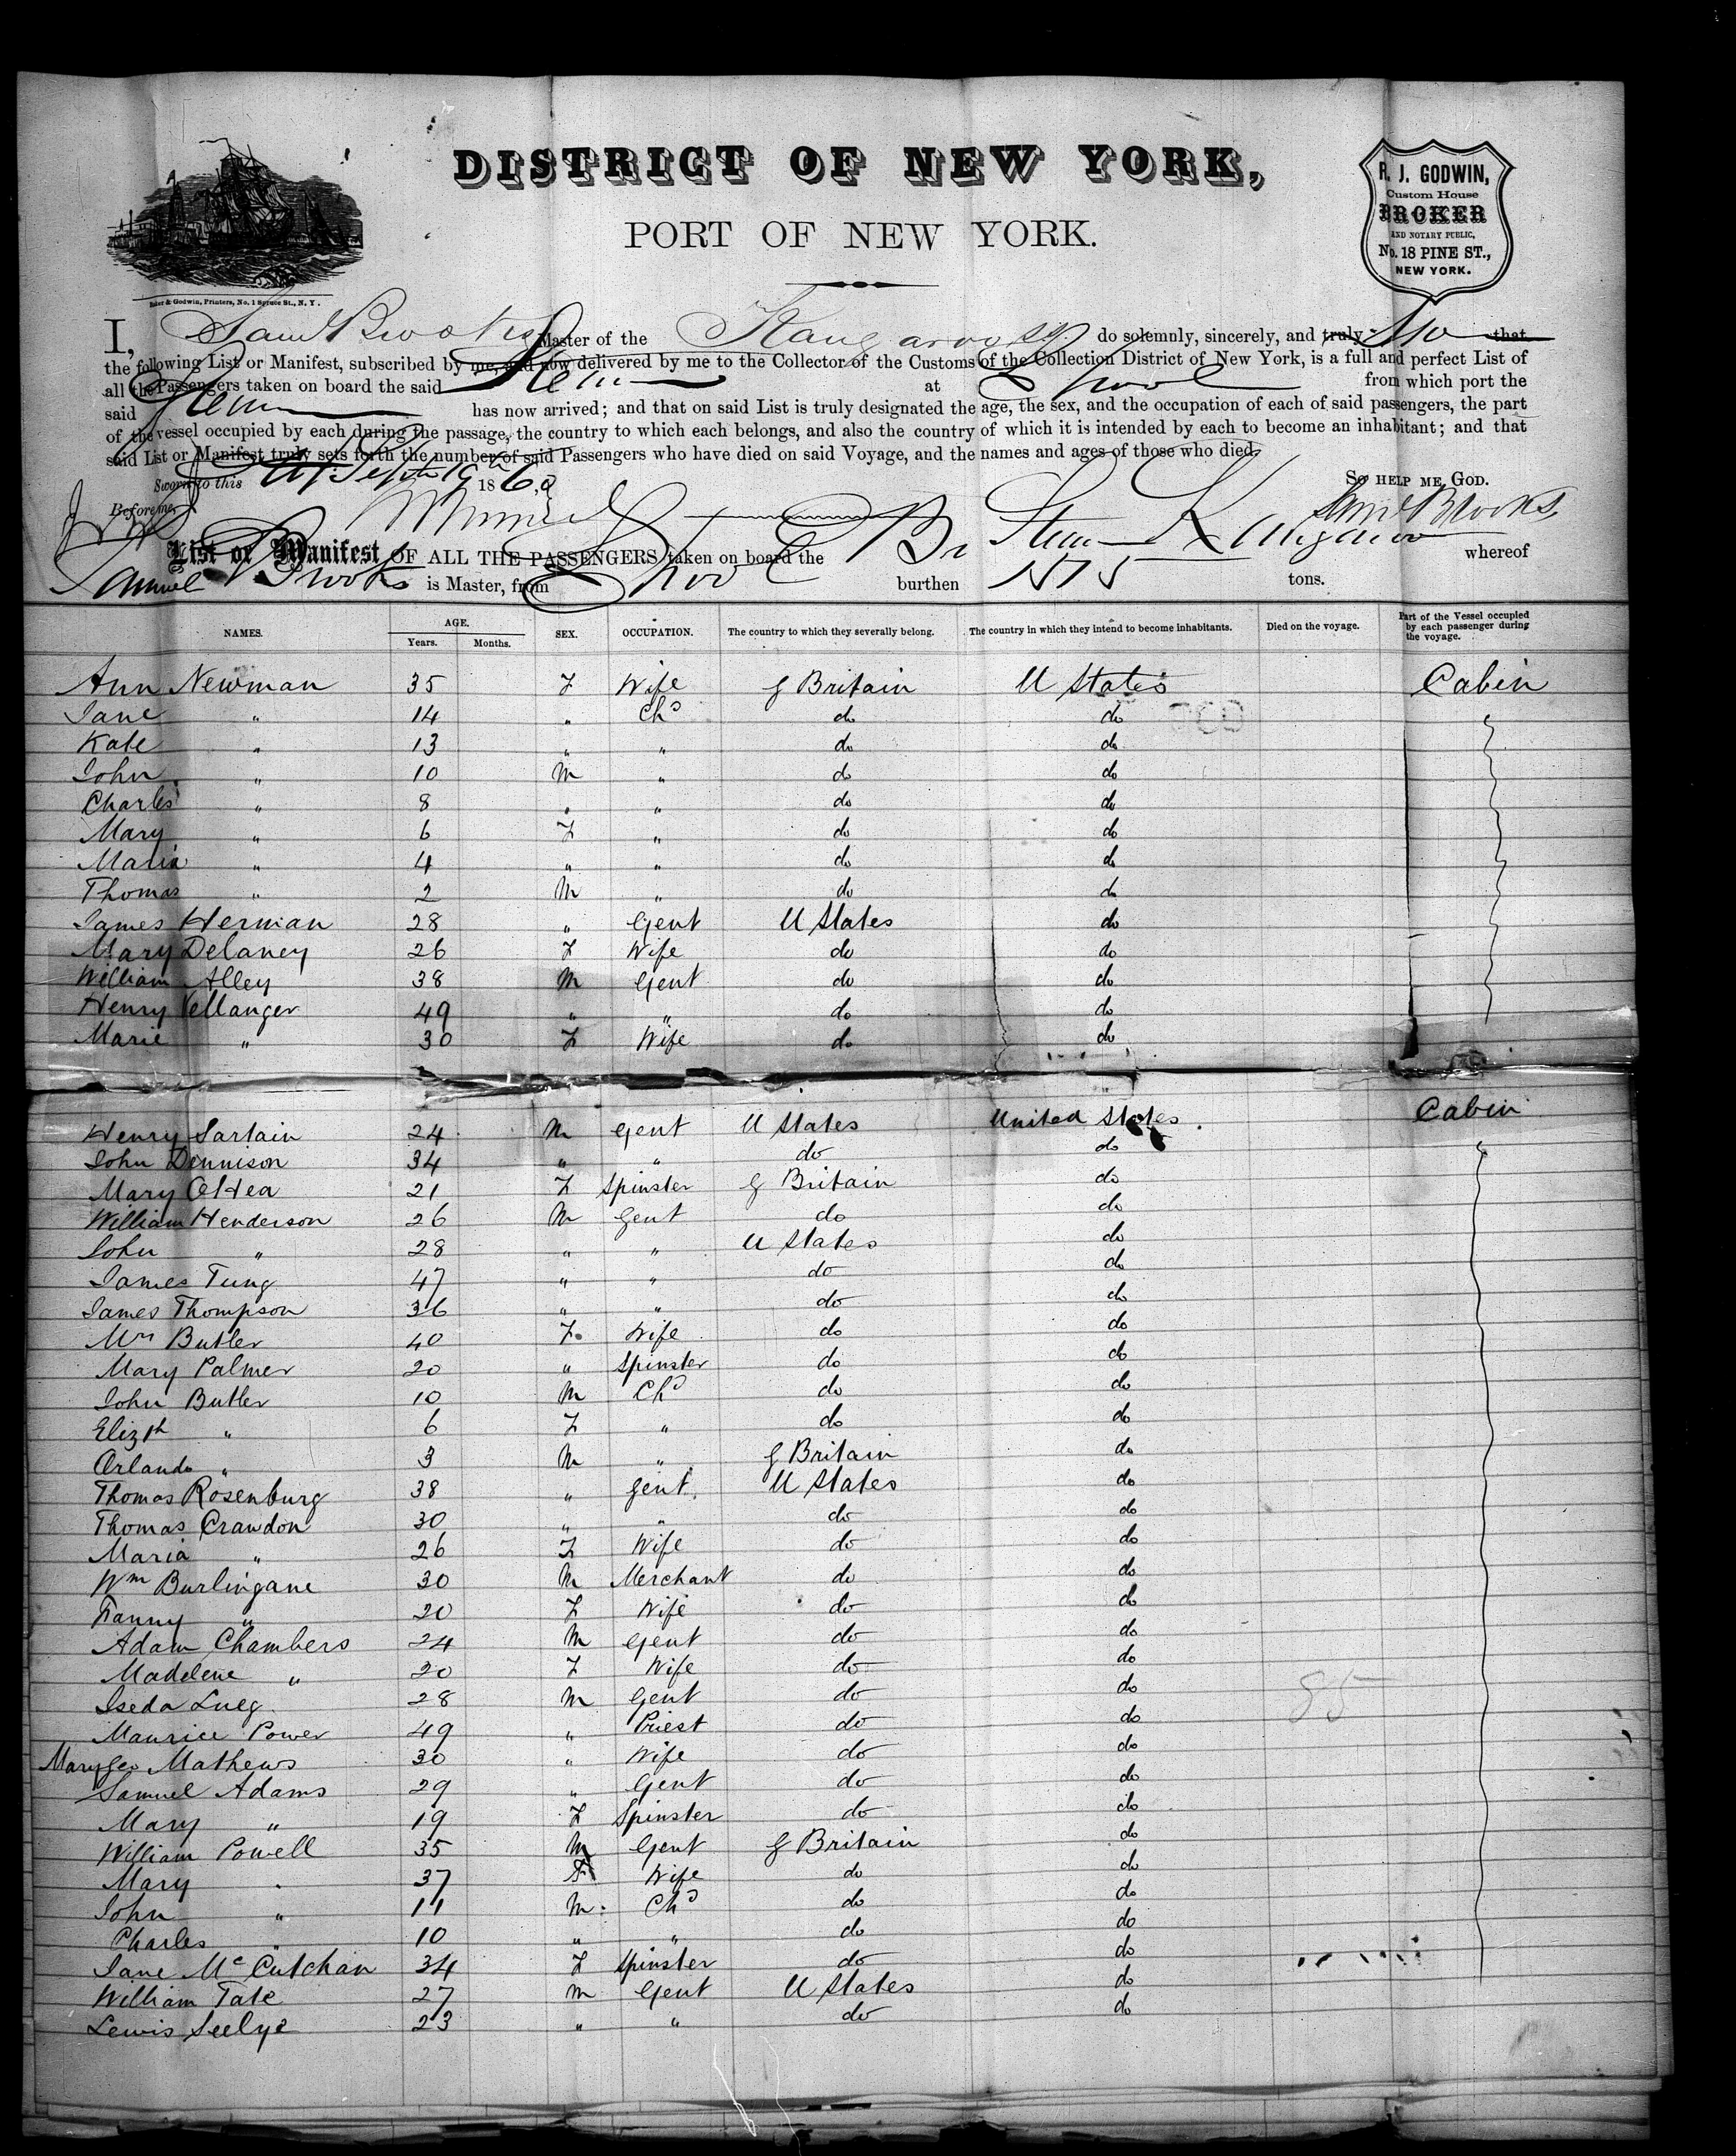 DISTRICT OF NEW YORK,
PORT OF NEW YORK.
R. J. GODWIN,
Custom House
BROKER
AND NOTARY PUBLIC,
No. 18 PINE ST.,
NEW YORK.
Baker & Godwin, Printers, No. 1 Spruce St., N. Y.
I, Saml Brooks Master of the Kangaroo do solemnly, sincerely, and truly that
the following List or Manifest, subscribed by me, and now delivered by me to the Collector of the Customs of the Collection District of New York, is a full and perfect List of
all the Passengers taken on board the said at from which port the
said has now arrived; and that on said List is truly designated the age, the sex, and the occupation of each of said passengers, the part
of the vessel occupied by each during the passage, the country to which each belongs, and also the country of which it is intended by each to become an inhabitant; and that
said List or Manifest truly sets forth the number of said Passengers who have died on said Voyage, and the names and ages of those who died.
Sworn to this Sept 19th 186 So HELP ME GOD.
Before me, Saml Brooks
List or Manifest OF ALL THE PASSENGERS taken on board the Br Steam Kangaroo whereof
Samuel Brooks is Master, from L'pool burthen 1575 tons.
NAMES. AGE. Years. Months. SEX. OCCUPATION. The country to which they severally belong. The country in which they intend to become inhabitants. Died on the voyage. Part of the Vessel occupied by each passenger during the voyage.
Ann Newman 35 F Wife G Britain U States Cabin
Jane " 14 " Chd do do
Kate " 13 " " do do
John " 10 M " do do
Charles " 8 " " do do
Mary " 6 F " do do
Maria " 4 " " do do
Thomas " 2 M " do do
James Herman 28 " Gent U States do
Mary Delaney 26 F Wife do do
William Alley 38 M Gent do do
Henry Vellanger 49 " " do do
Marie " 30 F Wife do do
Henry Sartain 24 M Gent U States United States Cabin
John Dennison 34 " " do do
Mary O'Hea 21 F Spinster G Britain do
William Henderson 26 M Gent do do
John " 28 " " U States do
James Tung 47 " " do do
James Thompson 36 " " do do
Mrs Butler 40 F Wife do do
Mary Palmer 20 " Spinster do do
John Butler 10 M Chd do do
Elizth " 6 F " do do
Orlando " 3 M " G Britain do
Thomas Rosenburg 38 " Gent U States do
Thomas Crawdon 30 " " do do
Maria " 26 F Wife do do
Wm Burlingane 30 M Merchant do do
Fanny " 20 F Wife do do
Adam Chambers 24 M Gent do do
Madelene " 20 F Wife do do
Iseda Lueg 28 M Gent do do
Maurice Power 49 " Priest do do
Mary Geo Mathews 30 " Wife do do
Samuel Adams 29 " Gent do do
Mary " 19 F Spinster do do
William Powell 35 M Gent G Britain do
Mary " 37 F Wife do do
John " 11 M Chd do do
Charles " 10 " " do do
Jane McCutchan 34 F Spinster do do
William Tate 27 M Gent U States do
Lewis Seelye 23 " " do do
85